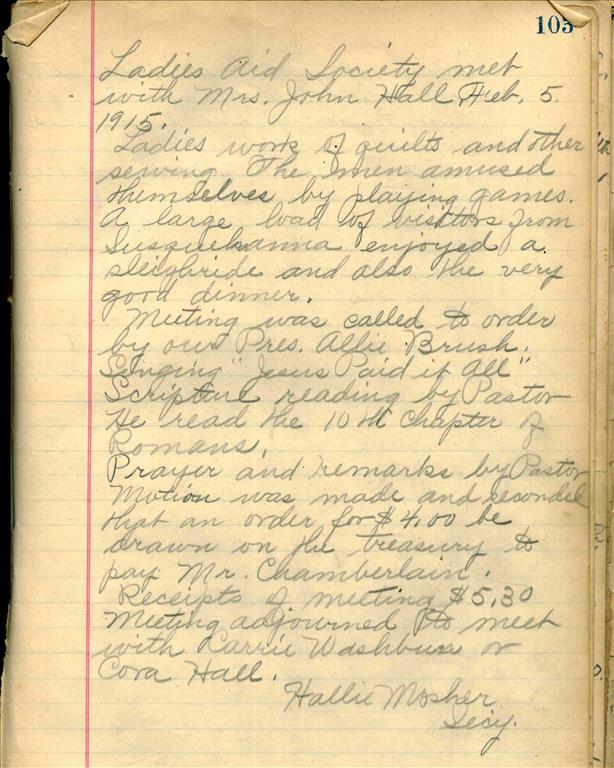 105
Ladies Aid Society met
with Mrs. John Hall Feb. 5.
1915.
Ladies work of quilts and other
sewing. The men amused
themselves by playing games.
A large load of visitors from
Susquehanna enjoyed a
sleighride and also the very
good dinner.
Meeting was called to order
by our Pres. Allie Brush.
Singing "Jesus Paid it All"
Scripture reading by Pastor
He read the 10th Chapter of
Romans.
Prayer and remarks by Pastor
Motion was made and seconded
that an order for $4.00 be
drawn on the treasury to
pay Mr. Chamberlain.
Receipts of meeting $5.30
Meeting adjourned to meet
with Carrie Washburn or
Cora Hall.
Hallie Mosher
Secy.